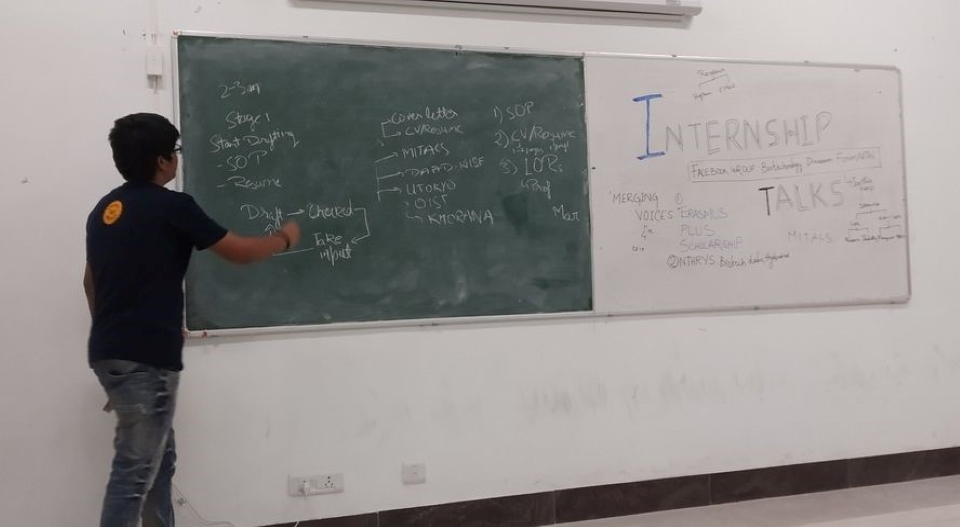 Stage 1
Start Drafting
- SOP
- Resume
Draft → Checked
Take
input
Cover letter
CV/Resume
MITACS
DAAD-WISE
UTOKYO
OIST
KHORANA
1) SOP
2) CV/Resume
3) LORs
Prof
Mar
INTERNSHIP
FACEBOOK GROUP Biotechnology
TALKS
'MERGING
VOICES'
①
ERASMUS
PLUS
SCHOLARSHIP
② NTHRYS Biotech Labs
MITACS